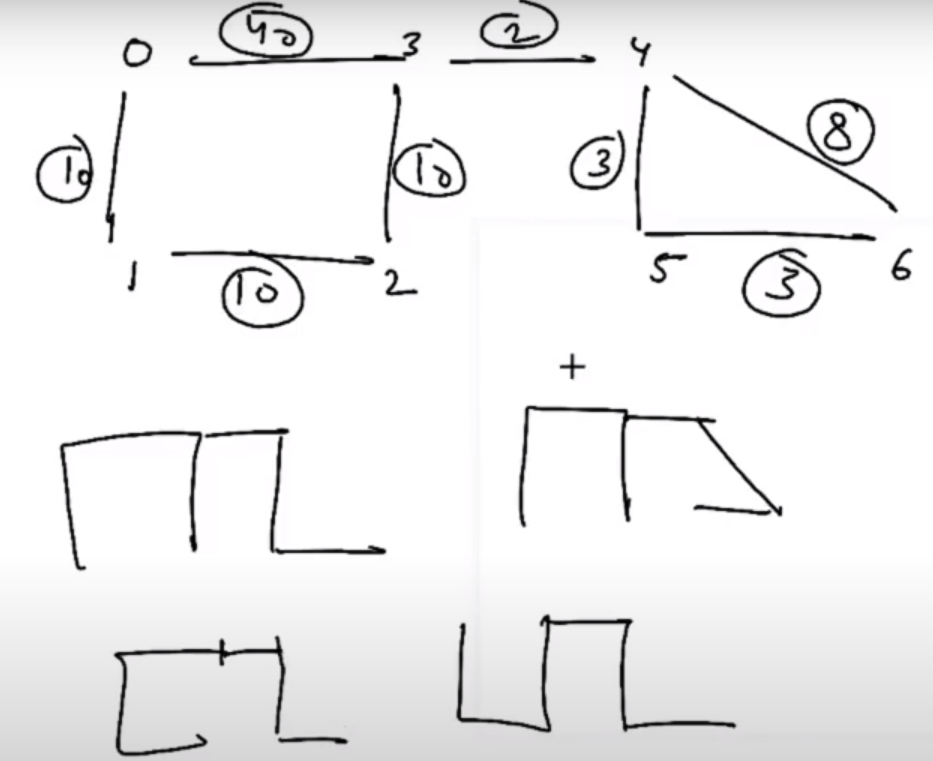 40 2
0 3 4
10 10 3 8
1 10 2 5 3 6
+